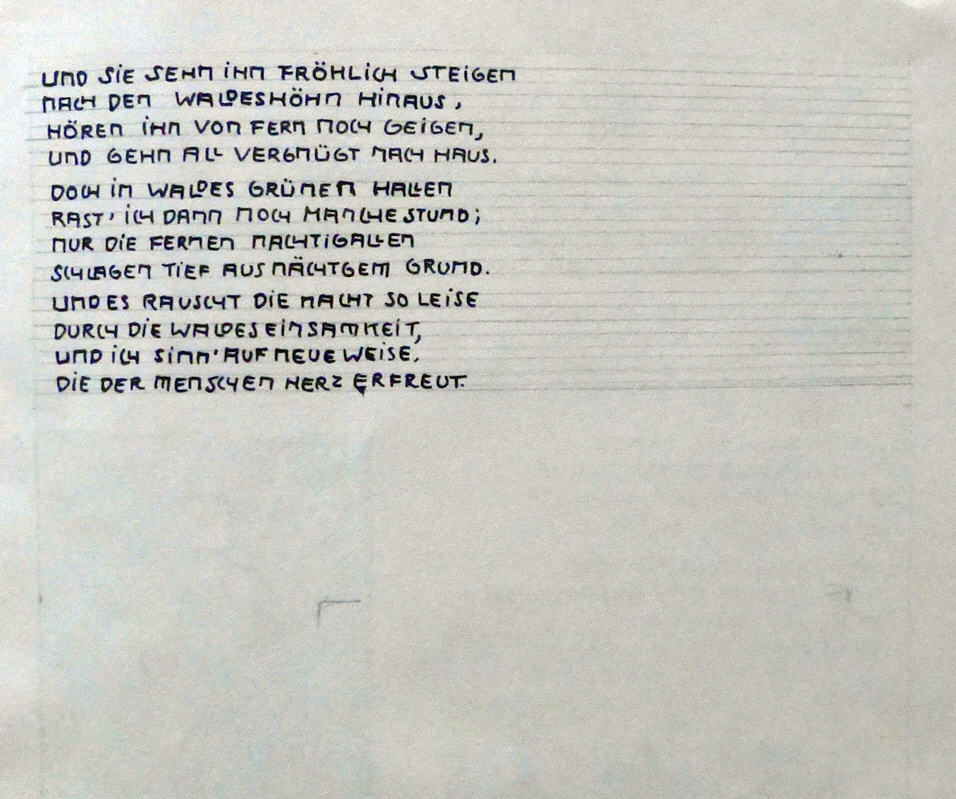 UND SiE SEHN iHN FRÖHLiCH STEiGEN
NACH DEN WALDESHÖHN HiNAUS,
HÖREN iHN VON FERN NOCH GEiGEN,
UND GEHN ALL VERGNÜGT NACH HAUS.
DOCH iN WALDES GRÜNEN HALLEN
RAST' iCH DANN NOCH MANCHE STUND;
NUR DiE FERNEN NACHTiGALLEN
SCHLAGEN TiEF AUS NÄCHTGEM GRUND.
UND ES RAUSCHT DiE NACHT SO LEiSE
DURCH DiE WALDESEiNSAMKEiT,
UND iCH SiNN' AUF NEUE WEiSE,
DiE DER MENSCHEN HERZ ERFREUT.